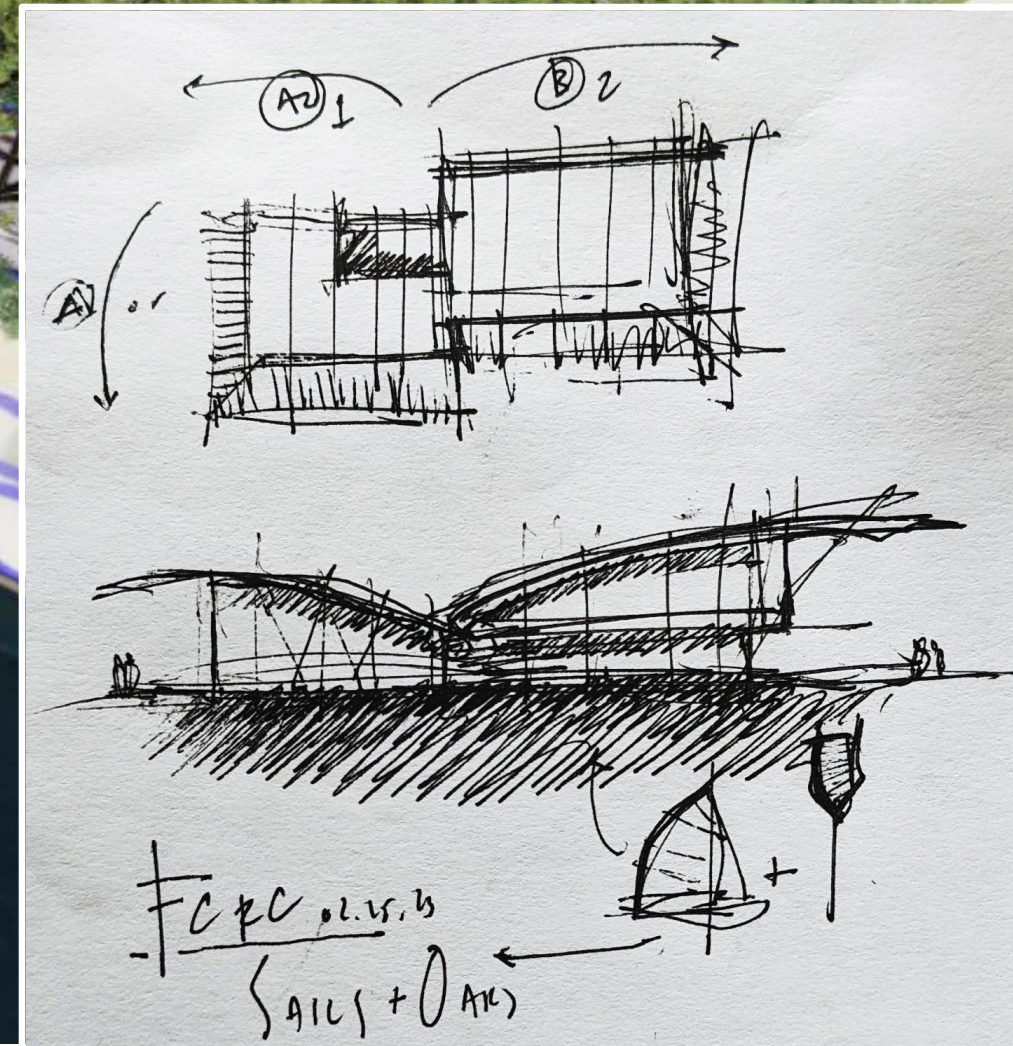 A2 1
B 2
A1 or
+
FCRC 02.25.23
SAILS + OARS